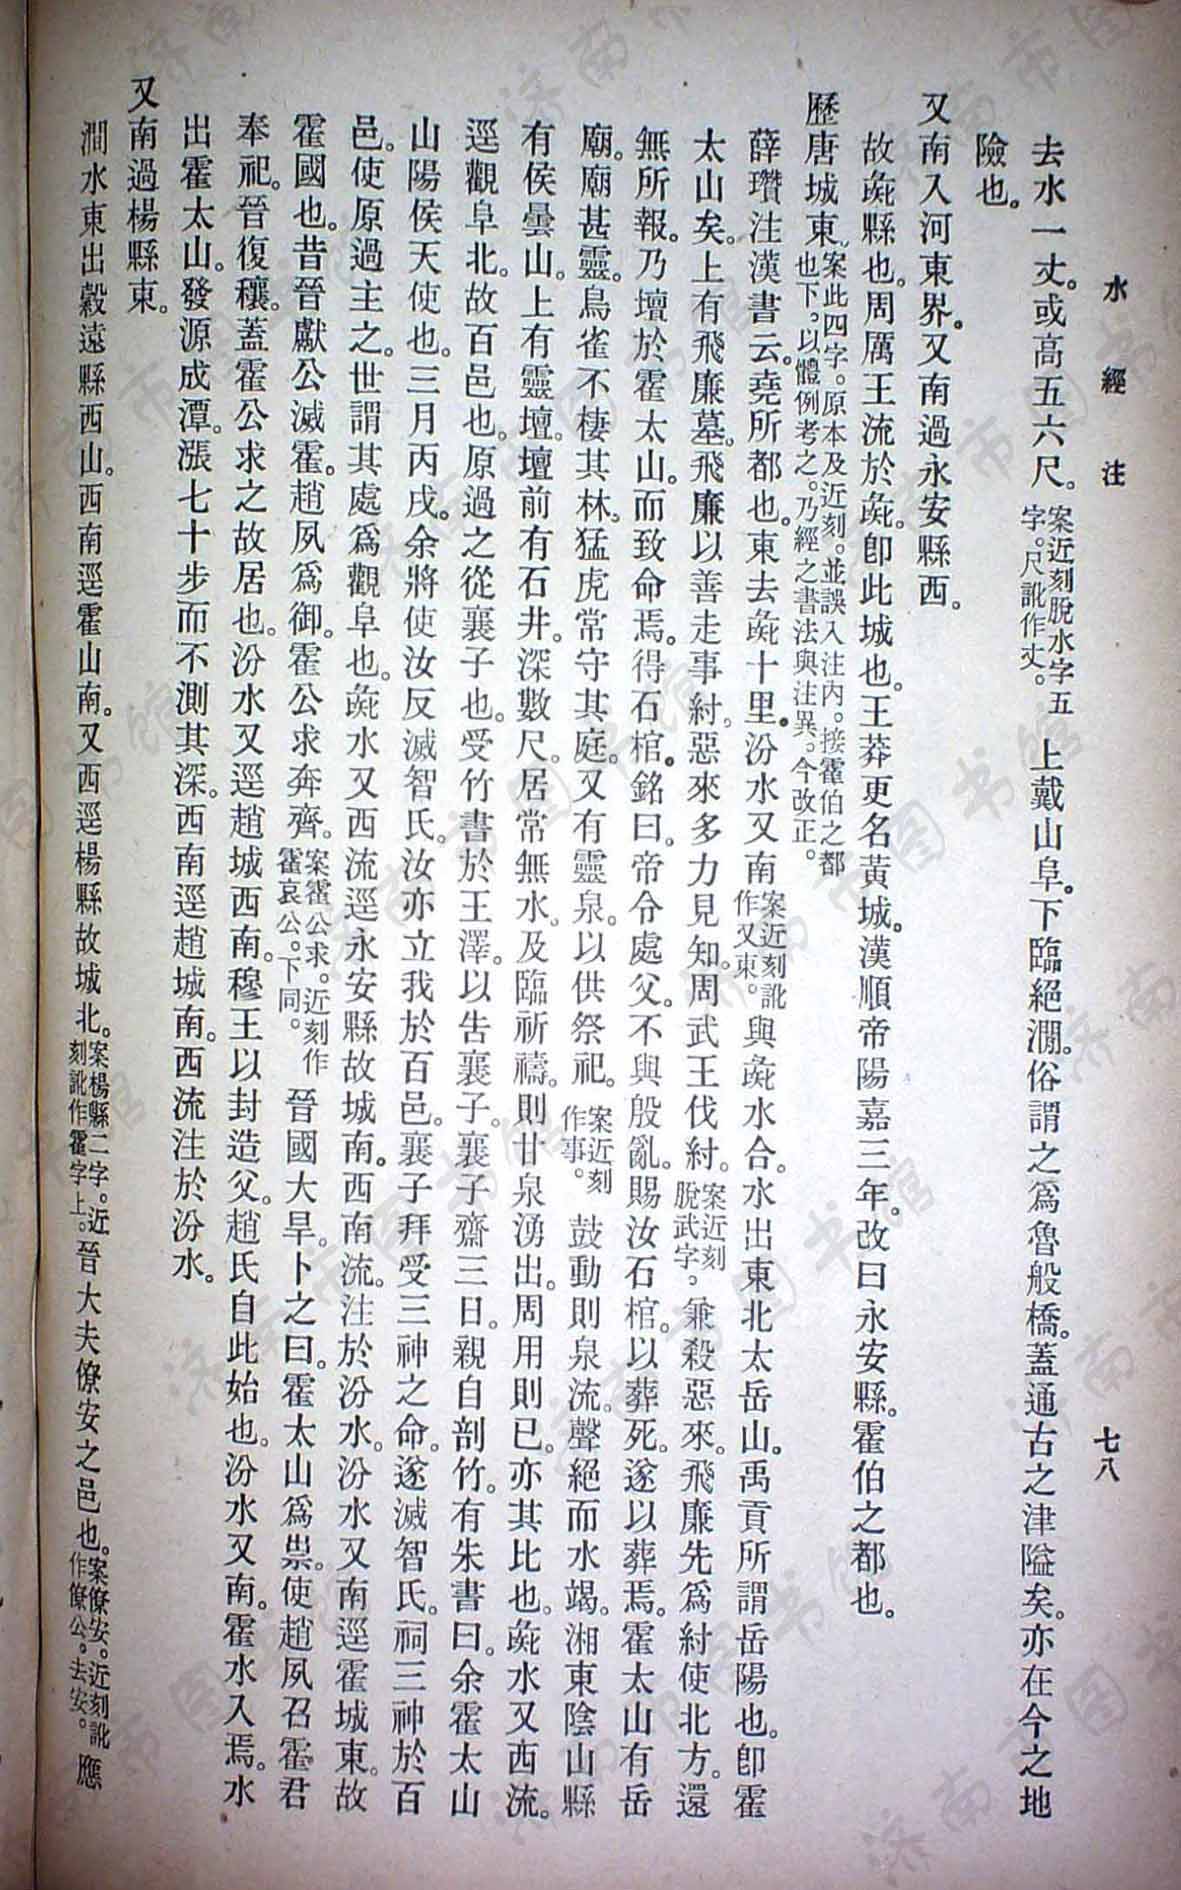 水經注
七八
去水一丈。或高五六尺。案近刻脫水字五字。尺訛作丈。上戴山阜。下臨絕澗。俗謂之爲魯般橋。蓋通古之津隘矣。亦在今之地
險也。
又南入河東界。又南過永安縣西。
故彘縣也。周厲王流於彘。卽此城也。王莽更名黃城。漢順帝陽嘉三年。改曰永安縣。霍伯之都也。
歷唐城東。案此四字。原本及近刻。並誤入注內。接霍伯之都也下。以體例考之。乃經之書法與注異。今改正。
薛瓚注漢書云。堯所都也。東去彘十里。汾水又南案近刻訛作又東。與彘水合。水出東北太岳山。禹貢所謂岳陽也。卽霍
太山矣。上有飛廉墓。飛廉以善走事紂。惡來多力見知。周武王伐紂。案近刻脫武字。兼殺惡來。飛廉先爲紂使北方。還
無所報。乃壇於霍太山。而致命焉。得石棺。銘曰。帝令處父。不與殷亂。賜汝石棺。以葬死。遂以葬焉。霍太山有岳
廟。廟甚靈。鳥雀不棲其林。猛虎常守其庭。又有靈泉。以供祭祀。案近刻作事。鼓動則泉流。聲絕而水竭。湘東陰山縣
有侯曇山。上有靈壇。壇前有石井。深數尺。居常無水。及臨祈禱。則甘泉湧出。周用則已。亦其比也。彘水又西流。
逕觀阜北。故百邑也。原過之從襄子也。受竹書於王澤。以告襄子。襄子齋三日。親自剖竹。有朱書曰。余霍太山
山陽侯天使也。三月丙戌。余將使汝反滅智氏。汝亦立我於百邑。襄子拜受三神之命。遂滅智氏。祠三神於百
邑。使原過主之。世謂其處爲觀阜也。彘水又西流逕永安縣故城南。西南流。注於汾水。汾水又南逕霍城東。故
霍國也。昔晉獻公滅霍。趙夙爲御。霍公求奔齊。案霍公求。近刻作霍哀公。下同。晉國大旱。卜之曰。霍太山爲祟。使趙夙召霍君
奉祀。晉復穰。蓋霍公求之故居也。汾水又逕趙城西南。穆王以封造父。趙氏自此始也。汾水又南。霍水入焉。水
出霍太山。發源成潭。漲七十步而不測其深。西南逕趙城南。西流注於汾水。
又南過楊縣東。
澗水東出穀遠縣西山。西南逕霍山南。又西逕楊縣故城北。案楊縣二字。近刻訛作霍字上。晉大夫僚安之邑也。案僚安。近刻訛作僚公。去安。應